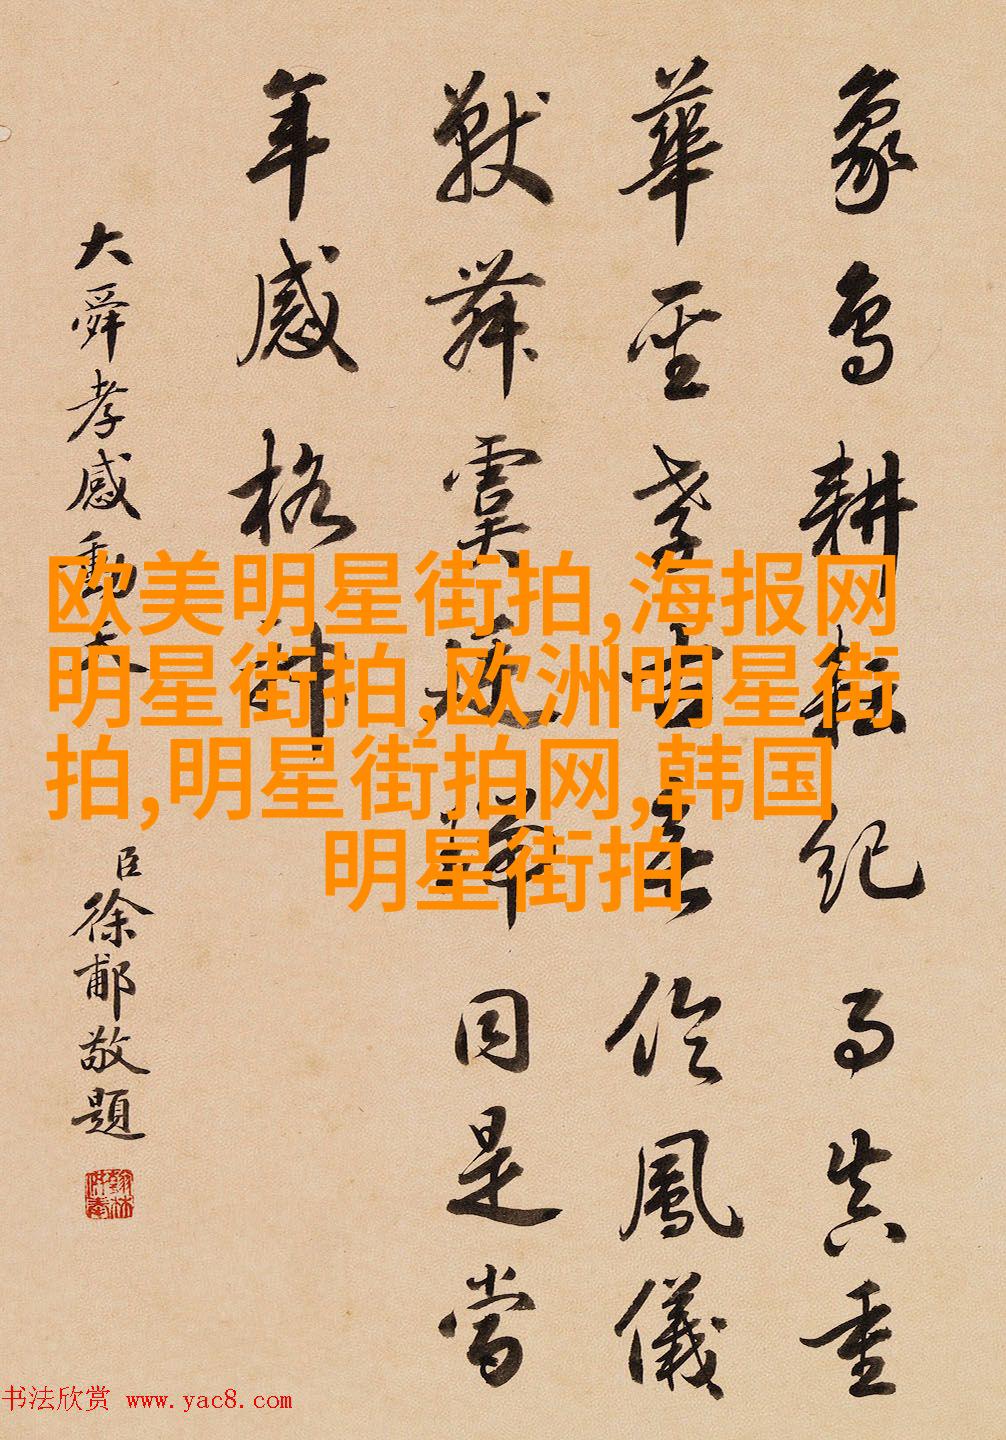 象鳥耕耘紀事真重
華至孝古無倫鳳儀
獸舞虞同是當
年感格神
大舜孝感動天
臣徐郙敬題
欧美明星街拍,海报网
明星街拍,欧洲明星街
拍,明星街拍网,韩国
明星街拍
书法欣赏 www.yac8.com